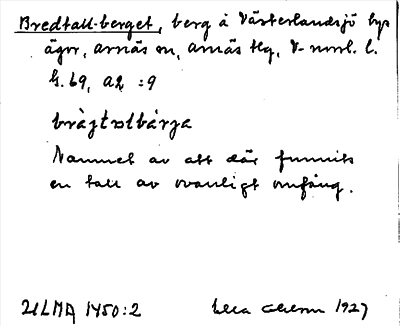 Bredtall-berget, berg å Västerlandsjö bys
ägor, Arnäs sn, Arnäs tlg, V-norrl. l.
G. 69, a2 :9
bràjtɒlbárja
Namnet av att där funnits
en tall av ovanligt omfång.
ULMA 1450:2 1927